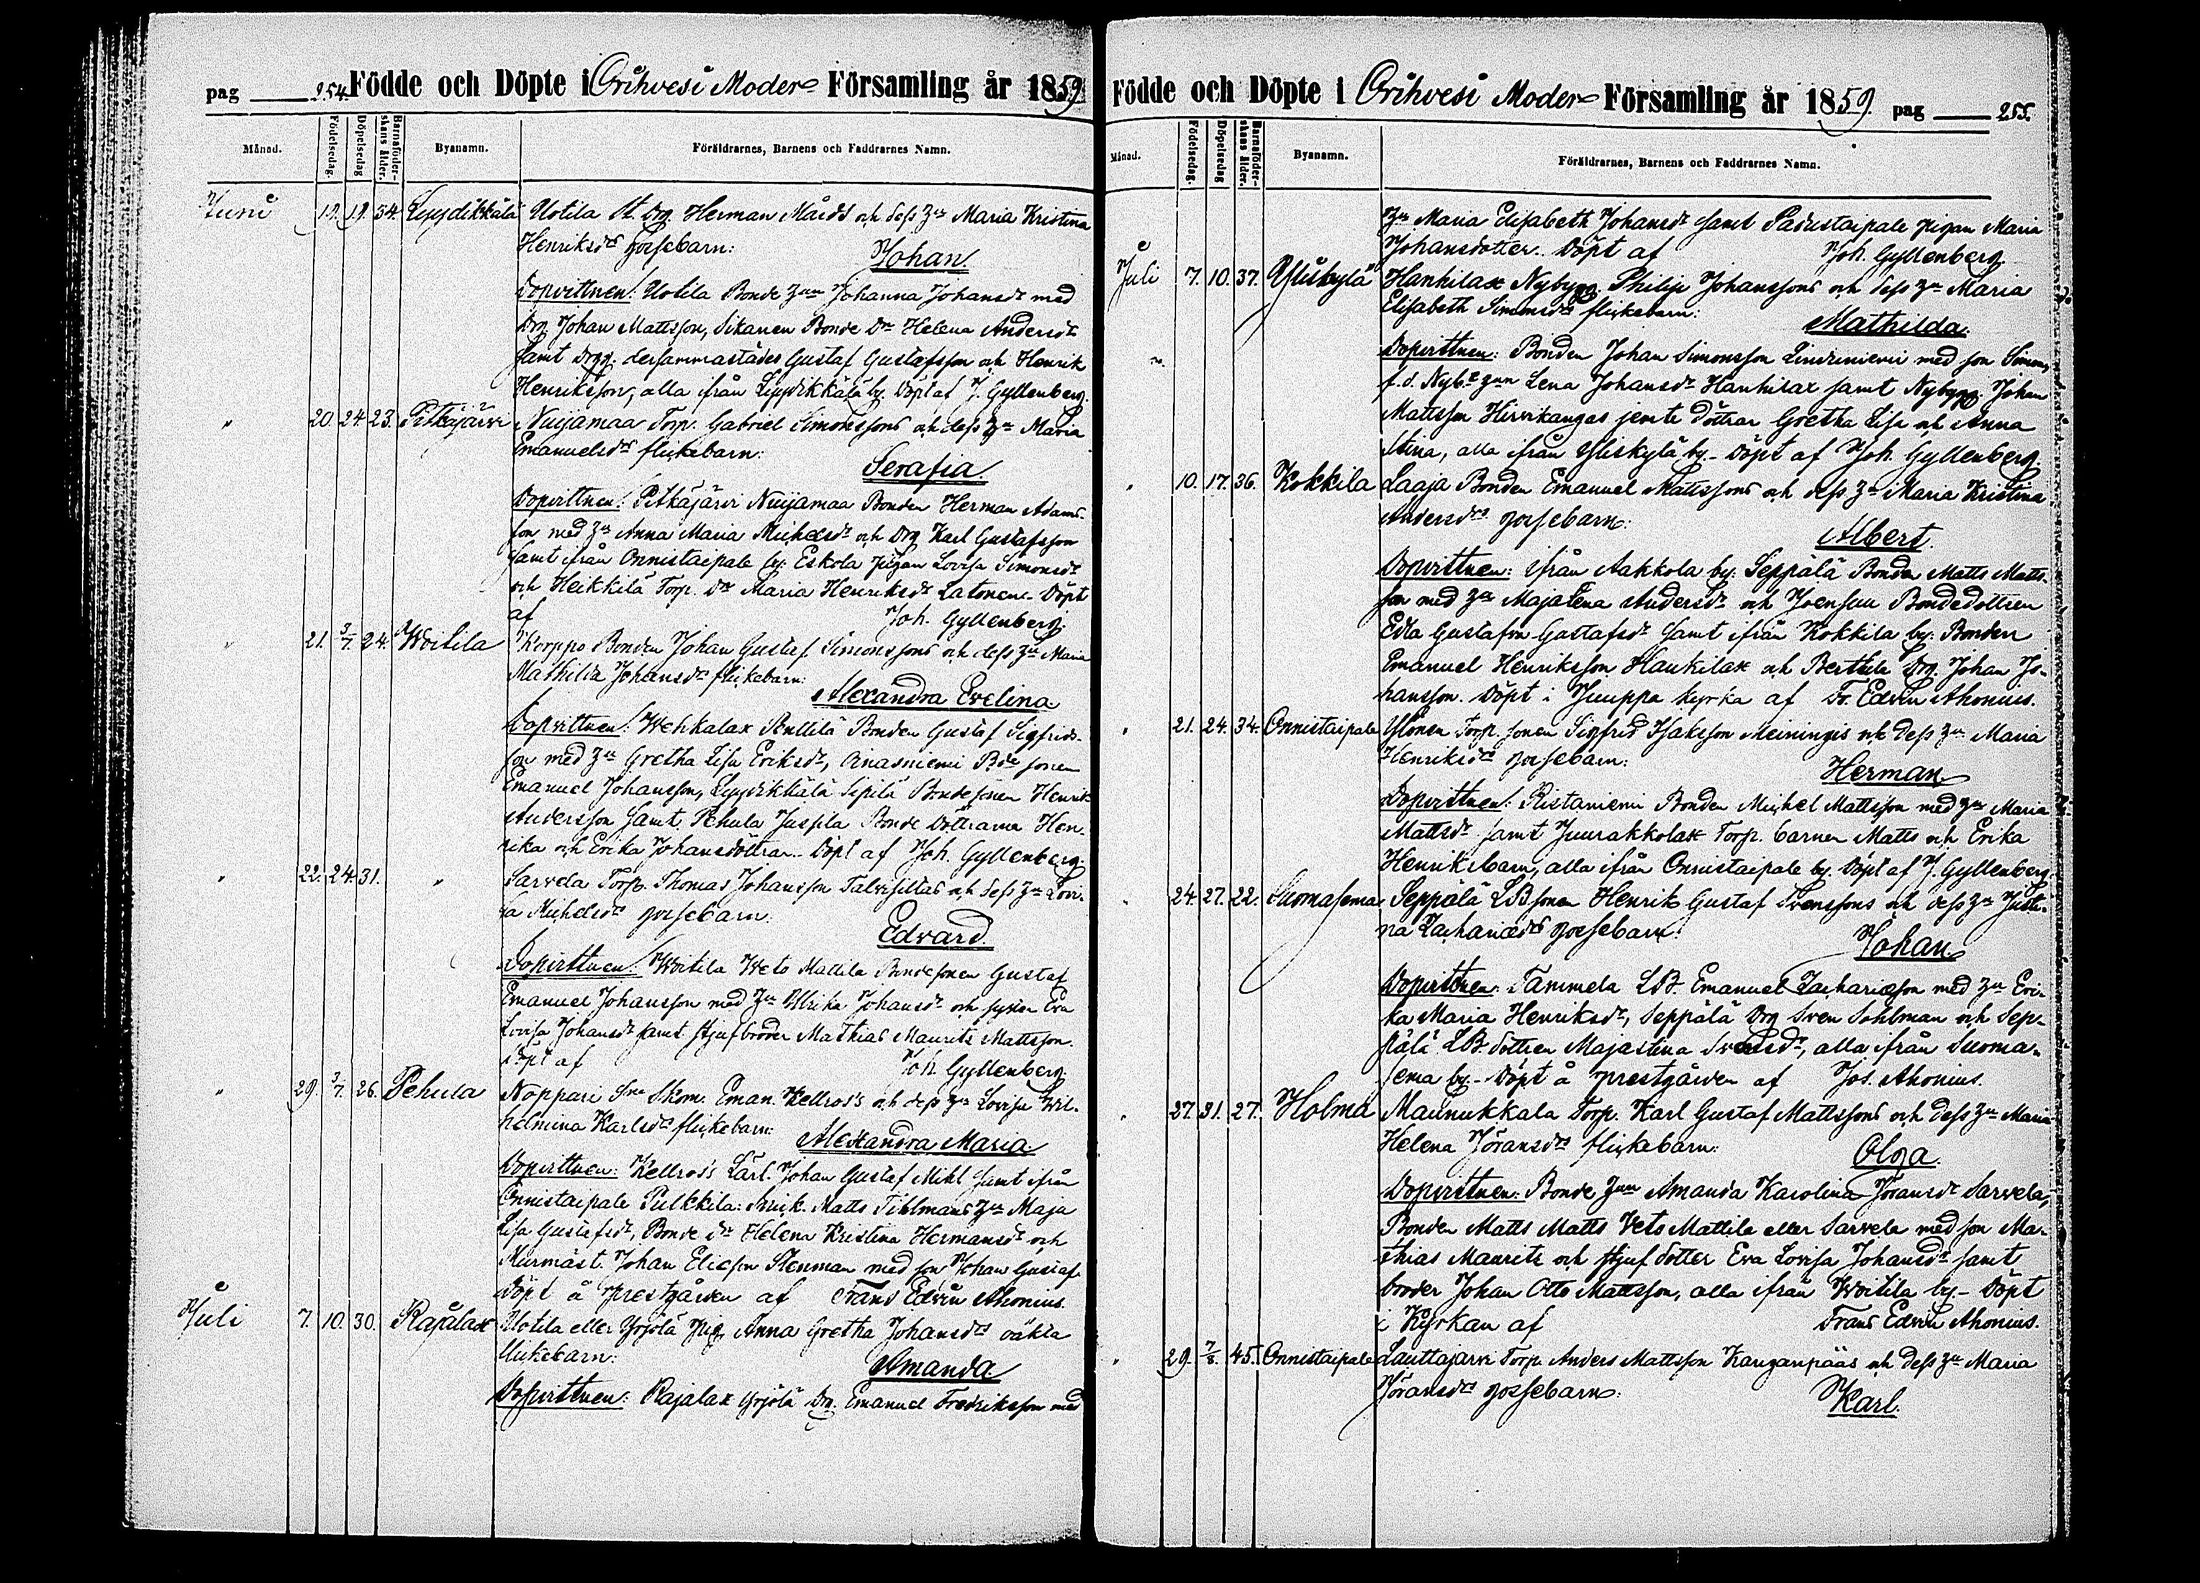 pag 254. Födde och Döpte i Orihvesi Moder Församling år 1859.
Månad. Födelsedag. Döpelsedag Barnaföderskans ålder. Bynamn. Föräldrarnes, Barnens och Faddrarnes Namn.
Juni 19. 19. 34 Lyydikkälä Uotila St. Drg. Herman Mårds och dess Hu Maria Kristina
Henriksdrs gossebarn: Johan
Dopvittnen: Uotila Bonde Hun Johanna Johansdr med
Drg Johan Mattsson, Sikanen Bonde Dr Helena Andersdr
samt Drgg. dersammastädes Gustaf Gustafsson och Henrik
Henriksson, alla ifrån Lyydikkälä by. Döpt af J. Gyllenberg.
" 20. 24 23. Pitkäjärvi Nuijamaa Torp. Gabriel Simonssons och dess Hu Maria
Emanuelsdrs flickebarn: Serafia
Dopvittnen: Pitkäjärvi Nuijamaa Bonden Herman Adams-
son med Hu Anna Maria Michelsdr och Drg Karl Gustafsson
samt ifrån Onnistaipale by: Eskola Pigan Lovisa Simonsdr
och Heikkilä Torp. Dr Maria Henriksdr Latonen. Döpt
af Joh. Gyllenberg.
" 21. 3/7 24. Woitila Korppo Bonden Johan Gustaf Simonssons och dess Hu Maria
Mathilda Johansdrs flickebarn: Alexandra Evelina
Dopvittnen: Wehkalax Anttilä Bonden Gustaf Sigfrids-
son med Hu Gretha Lisa Eriksdr, Oinasniemi Bde sonen
Emanuel Johansson, Lyydikkälä Sipilä Bondesonen Henrik
Andersson samt Pehula Juspila Bonde Döttrarna Hen-
rika och Erika Johansdöttrar. Döpt af Joh. Gyllenberg.
" 22. 24. 31. " Sarvela Torp. Thomas Johansson Talvisiltas och dess Hu Lovi-
sa Michelsdrs gossebarn: Edvard.
Dopvittnen: Woitila Weto Mattila Bondesonen Gustaf
Emanuel Johansson med Hu Ulrika Johansdr och syster Eva
Lovisa Johansdr samt stjufbroder Mathias Maurits Mattsson.
Döpt af Joh. Gyllenberg.
" 29. 3/7. 26. Pehula Noppari Skom. Eman. Kellros's och dess Hu Lovisa Wil-
helmina Karlsdrs flickebarn: Alexandra Maria
Dopvittnen: Kellros's Lärl. Johan Gustaf Mikl samt ifrån
Onnistaipale Pulkkila: Matts Tihlmans Hu Maja
Lisa Gustafsdr, Bonde dr Helena Kristina Hermansdr och
Murmäst. Johan Eliesson Stenman med son Johan Gustaf.
Döpt å Prestgården af Frans Edvin Ahonius.
Juli 7. 10. 30. Rajalax Uotila eller Yrjölä Pig. Anna Gretha Johansdrs oäkta
flickebarn: Amanda
Dopvittnen: Rajalax Yrjölä Drg. Emanuel Fredriksson med
Födde och Döpte i Orihvesi Moder Församling år 1859. pag 255.
Månad. Födelsedag. Döpelsedag Barnaföderskans ålder. Bynamn. Föräldrarnes, Barnens och Faddrarnes Namn.
Hu Maria Elisabeth Johansdr samt Padustaipale Pigan Maria
Johansdotter. Döpt af Joh. Gyllenberg
Juli 7. 10. 37. Yliskylä Hankilax Nybygg. Philip Johanssons och dess Hu Maria
Elisabeth Simonsdrs flickebarn: Mathilda.
Dopvittnen: Bonden Johan Simonsson Linduniemi med son Simon,
f.d. Nyb. Hun Lena Johansdr Hankilax samt Nybygg. Johan
Mattsson Hirvikangas jemte döttrar Gretha Lisa och Anna
Stina, alla ifrån Yliskylä by. Döpt af Joh. Gyllenberg.
" 10. 17. 36. Kokkila Laaja Bonden Emanuel Mattssons och dess Hu Maria Kristina
Andersdrs gossebarn: Albert.
Dopvittnen: ifrån Aakkola by: Seppälä Bonden Matts Matts-
son med Hu Majalena Andersdr och Joensuu Bondedottren
Edla Gustafva Gustafsdr samt ifrån Kokkila by: Bonden
Emanuel Henriksson Haukilax och Berttula Drg. Johan Jo-
hansson. Döpt i Juuppa kyrka af Fr. Edvin Ahonius.
" 21. 24. 34. Onnistaipale Ylönen Torp. sonen Sigfrid Isaksson Meiningis och dess Hu Maria
Henriksdrs gossebarn: Herman
Dopvittnen: Ristaniemi Bonden Michel Mattsson med Hu Maria
Mattsdr samt Juurakkolax Torp. barnen Matts och Erika
Henriksbarn, alla ifrån Onnistaipale by. Döpt af J. Gyllenberg.
" 24. 27. 22. Suomasema Seppälä LBsonen Henrik Gustaf Svenssons och dess Hu Justi-
na Zachariædrs gossebarn: Johan
Dopvittnen: Tammela LB. Emanuel Zachariæson med Hu Eri-
ka Maria Henriksdr, Seppälä Drg Sven Sohlman och Sep-
pälä LB dottren Majastina Svensdr, alla ifrån Suoma-
sema by. Döpt å Prestgården af Jos. Ahonius.
" 27. 31. 27. Holma Maunukkala Torp. Karl Gustaf Mattssons och dess Hu Maria
Helena Jöransdrs flickebarn: Olga.
Dopvittnen: Bonde Hun Amanda Karolina Jöransdr Sarvela,
Bonden Matts Matts Veto Mattila eller Sarvela med son Ma-
thias Maurits och stjufdotter Eva Lovisa Johansdr samt
broder Johan Otto Mattsson, alla ifrån Woitila by. Döpt
i Kyrkan af Frans Edvin Ahonius.
" 29. 7/8. 45. Onnistaipale Lauttajarvi Torp. Anders Mattsson Kanganpääs och dess Hu Maria
Jöransdrs gossebarn: Karl.